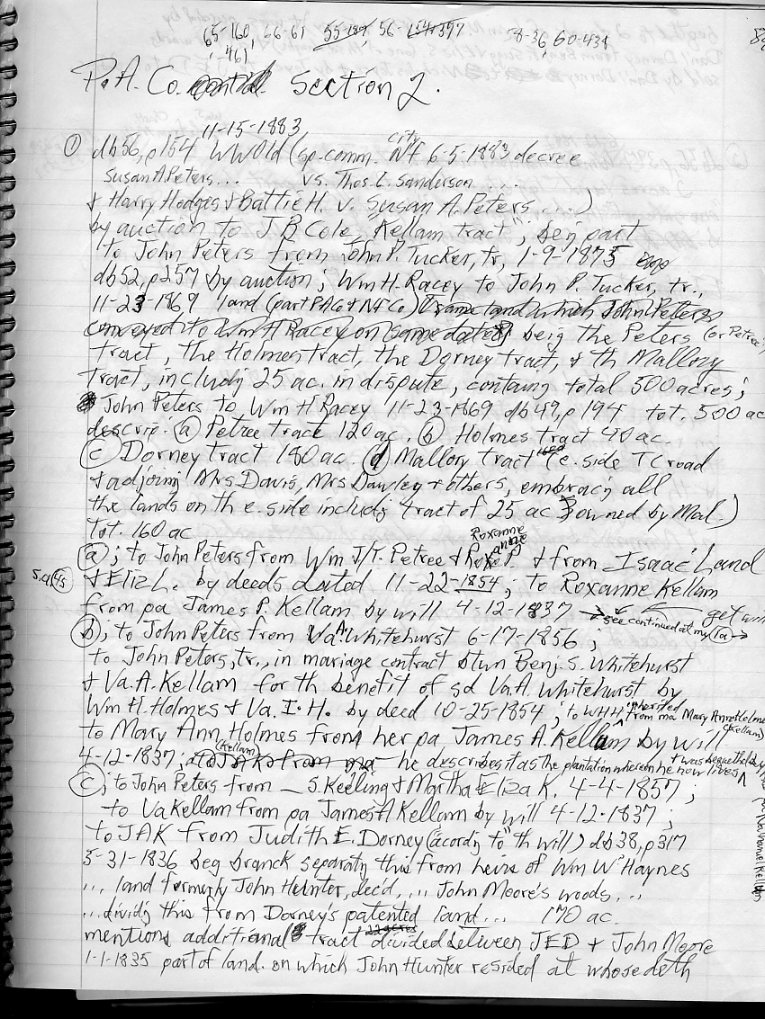 65-160, 66-61 55-184 56-154+397 58-36, 60-434
461,
P.A. Co. Section 2.
11-15-1883
① db56, p154 WWOld (sp.comm. city Nf 6-5-1883 decree
Susan A Peters... vs. Thos. L. Sanderson ....
& Harry Hodges & Battie H. v. Susan A. Peters ...)
by auction to J.B Cole "Kellam tract"; beig part
to John Peters from John P. Tucker, tr, 1-9-1875
db52, p257 by auction; Wm H. Racey to John P. Tucker, tr.,
11-23-1869 land (part PACo & Nf Co) (same land which John Peters
conveyed to Wm H Racey on same date) beig the Peters (or Petree)
tract, the Holmes tract, the Dorney tract, & th Mallory
tract, includig 25 ac. in dispute, containg total 500 acres;
John Peters to Wm H Racey 11-23-1869 db49, p194 tot. 500 ac
descrie. (a) Petree tract 120 ac. (b) Holmes tract 40 ac.
(c) Dorney tract 180 ac. (d) Mallory tract (e. side TC road
& adjoing Mrs Davis, Mrs Dawley & others, embracig all
the lands on th e. side includig tract of 25 ac owned by Mal.)
tot. 160 ac
(a); to John Peters from Wm J/T. Petree & Roxanne P & from Isaac Land
& Eliz L. by deeds dated 11-22-1854; to Roxanne Kellam
from pa James P. Kellam by will 4-12-1837 → see continued at my 1a → get
(b); to John Peters from Va A Whitehurst 6-17-1856;
to John Peters, tr., in mariage contract btwn Benj. S. Whitehurst
& Va. A. Kellam for th benefit of sd Va.A. Whitehurst by
Wm H. Holmes & Va. I. H. by deed 10-25-1854; to WHH inherited from ma Mary Ann Holmes (Kellam)
to Mary Ann Holmes from her pa James A. Kellam by will
4-12-1837; he describes it as the plantation whereon he now lives & was bequethed by
(c); to John Peters from _ S. Keeling & Martha Eliza K. 4-4-1857;
to Va Kellam from pa James A Kellam by will 4-12-1837;
to JAK from Judith E. Dorney (acordig to th will) db38, p317
5-31-1836 beg branck separatg this from heirs of Wm W Haynes
... land formerly John Hunter, dec'd, ... John Moore's woods, ..
... dividg this from Dorney's patented land... 170 ac.
mentions additional tract divided between JED & John Moore
1-1-1835 part of land. on which John Hunter resided at whose deth